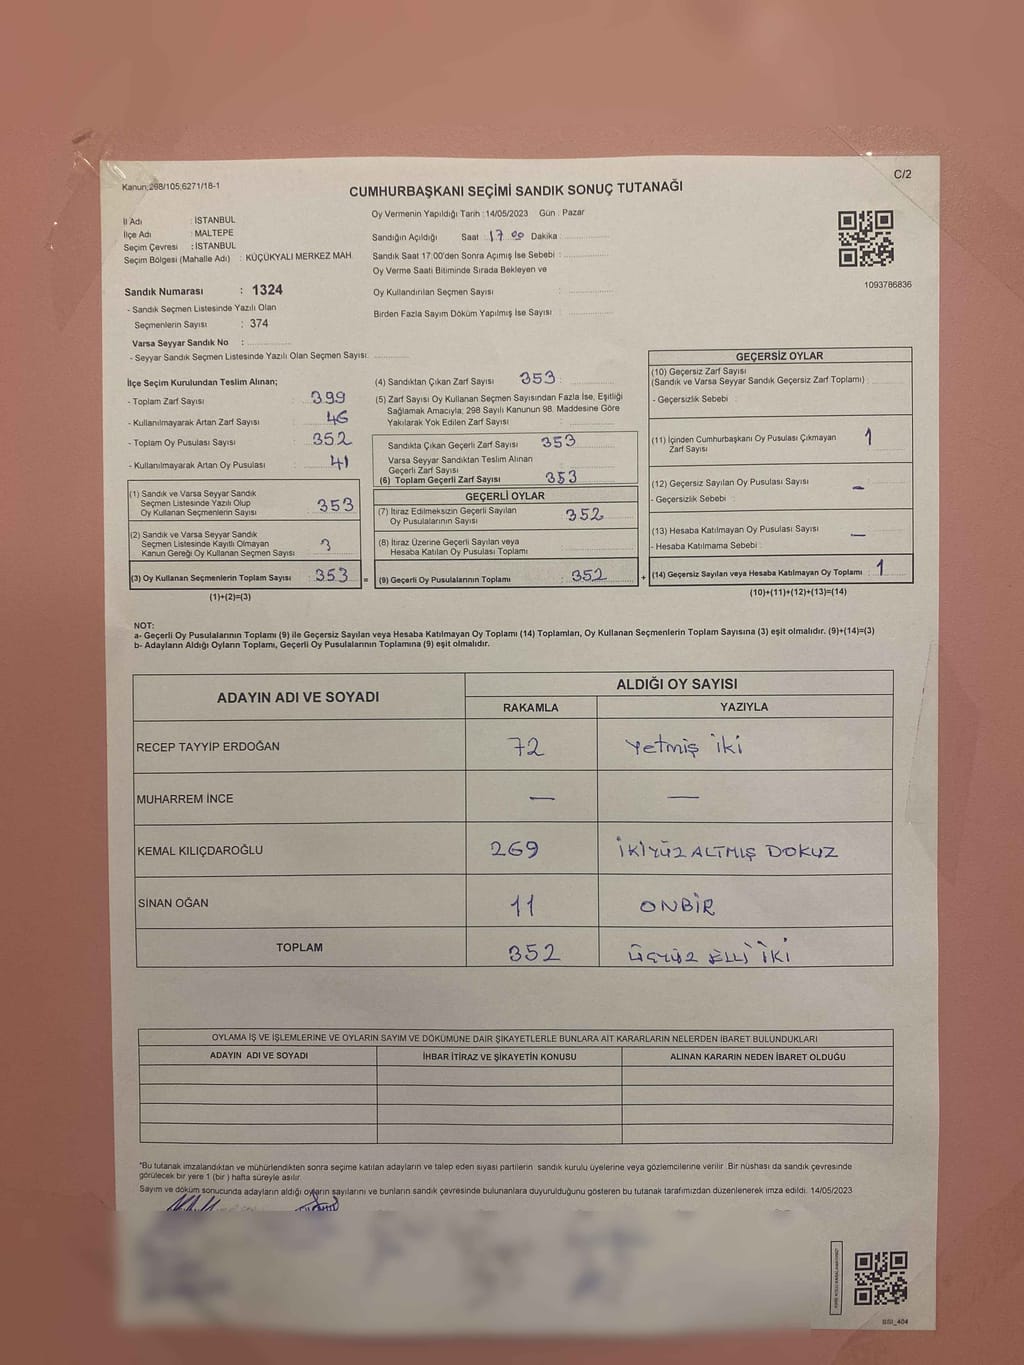 Kanun;298/105;6271/18-1
C/2
CUMHURBAŞKANI SEÇİMİ SANDIK SONUÇ TUTANAĞI
İl Adı : İSTANBUL
İlçe Adı : MALTEPE
Seçim Çevresi : İSTANBUL
Seçim Bölgesi (Mahalle Adı) : KÜÇÜKYALI MERKEZ MAH.
Oy Vermenin Yapıldığı Tarih : 14/05/2023 Gün : Pazar
Sandığın Açıldığı Saat : 17 00 Dakika :
Sandık Saat 17:00'den Sonra Açımış İse Sebebi :
Oy Verme Saati Bitiminde Sırada Bekleyen ve
Oy Kullandırılan Seçmen Sayısı :
Birden Fazla Sayım Döküm Yapılmış İse Sayısı :
1093786836
Sandık Numarası : 1324
- Sandık Seçmen Listesinde Yazılı Olan
Seçmenlerin Sayısı : 374
Varsa Seyyar Sandık No :
- Seyyar Sandık Seçmen Listesinde Yazılı Olan Seçmen Sayısı:
İlçe Seçim Kurulundan Teslim Alınan;
- Toplam Zarf Sayısı : 399
- Kullanılmayarak Artan Zarf Sayısı : 46
- Toplam Oy Pusulası Sayısı : 352
- Kullanılmayarak Artan Oy Pusulası : 41
(1) Sandık ve Varsa Seyyar Sandık
Seçmen Listesinde Yazılı Olup
Oy Kullanan Seçmenlerin Sayısı : 353
(2) Sandık ve Varsa Seyyar Sandık
Seçmen Listesinde Kayıtlı Olmayan
Kanun Gereği Oy Kullanan Seçmen Sayısı : 3
(3) Oy Kullanan Seçmenlerin Toplam Sayısı : 353 =
(1)+(2)=(3)
(4) Sandıktan Çıkan Zarf Sayısı : 353
(5) Zarf Sayısı Oy Kullanan Seçmen Sayısından Fazla İse, Eşitliği
Sağlamak Amacıyla; 298 Sayılı Kanunun 98. Maddesine Göre
Yakılarak Yok Edilen Zarf Sayısı :
Sandıkta Çıkan Geçerli Zarf Sayısı : 353
Varsa Seyyar Sandıktan Teslim Alınan
Geçerli Zarf Sayısı :
(6) Toplam Geçerli Zarf Sayısı : 353
GEÇERLİ OYLAR
(7) İtiraz Edilmeksizin Geçerli Sayılan
Oy Pusulalarının Sayısı : 352
(8) İtiraz Üzerine Geçerli Sayılan veya
Hesaba Katılan Oy Pusulası Toplamı :
(9) Geçerli Oy Pusulalarının Toplamı : 352 +
GEÇERSİZ OYLAR
(10) Geçersiz Zarf Sayısı
(Sandık ve Varsa Seyyar Sandık Geçersiz Zarf Toplamı) :
- Geçersizlik Sebebi :
(11) İçinden Cumhurbaşkanı Oy Pusulası Çıkmayan
Zarf Sayısı : 1
(12) Geçersiz Sayılan Oy Pusulası Sayısı : –
- Geçersizlik Sebebi :
(13) Hesaba Katılmayan Oy Pusulası Sayısı : –
- Hesaba Katılmama Sebebi :
(14) Geçersiz Sayılan veya Hesaba Katılmayan Oy Toplamı : 1
(10)+(11)+(12)+(13)=(14)
NOT:
a- Geçerli Oy Pusulalarının Toplamı (9) ile Geçersiz Sayılan veya Hesaba Katılmayan Oy Toplamı (14) Toplamları, Oy Kullanan Seçmenlerin Toplam Sayısına (3) eşit olmalıdır. (9)+(14)=(3)
b- Adayların Aldığı Oyların Toplamı, Geçerli Oy Pusulalarının Toplamına (9) eşit olmalıdır.
ADAYIN ADI VE SOYADI
ALDIĞI OY SAYISI
RAKAMLA YAZIYLA
RECEP TAYYİP ERDOĞAN 72 Yetmiş iki
MUHARREM İNCE — —
KEMAL KILIÇDAROĞLU 269 İKİYÜZ ALTMIŞ DOKUZ
SİNAN OĞAN 11 ONBİR
TOPLAM 352 ÜÇYÜZ ELLİ İKİ
OYLAMA İŞ VE İŞLEMLERİNE VE OYLARIN SAYIM VE DÖKÜMÜNE DAİR ŞİKAYETLERLE BUNLARA AİT KARARLARIN NELERDEN İBARET BULUNDUKLARI
ADAYIN ADI VE SOYADI İHBAR İTİRAZ VE ŞİKAYETİN KONUSU ALINAN KARARIN NEDEN İBARET OLDUĞU
*Bu tutanak imzalandıktan ve mühürlendikten sonra seçime katılan adayların ve talep eden siyasi partilerin sandık kurulu üyelerine veya gözlemcilerine verilir. Bir nüshası da sandık çevresinde
görülecek bir yere 1 (bir) hafta süreyle asılır.
Sayım ve döküm sonucunda adayların aldığı oyların sayılarını ve bunların sandık çevresinde bulunanlara duyurulduğunu gösteren bu tutanak tarafımızdan düzenlenerek imza edildi. 14/05/2023